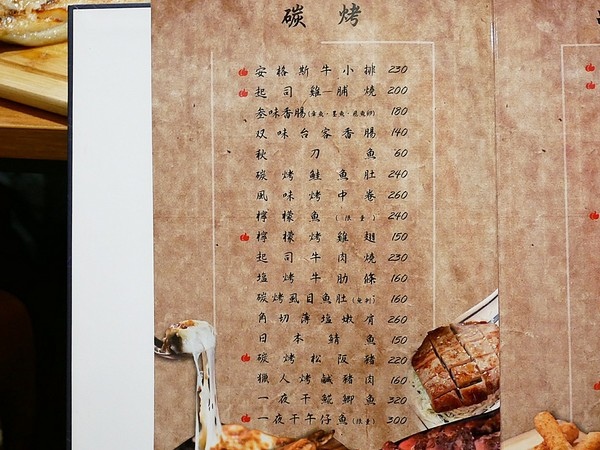 碳烤
安格斯牛小排 230
起司雞脯燒 200
叁味香腸(章魚·墨魚·飛魚卵) 180
双味台客香腸 140
秋刀魚 60
碳烤鮭魚肚 240
風味烤中卷 260
檸檬魚(限量) 240
檸檬烤雞翅 150
起司牛肉燒 230
塩烤牛肋條 160
碳烤虱目魚肚(無刺) 160
角切薄塩嫩肩 260
日本鯖魚 150
碳烤松阪豬 220
獵人烤鹹豬肉 160
一夜干鯤鯽魚 320
一夜干午仔魚(限量) 300